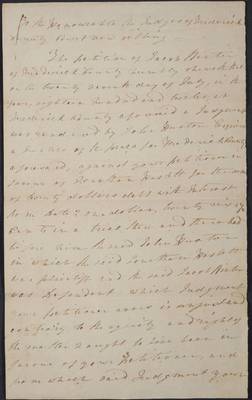 To the Honourable the Judges of Frederick
County Court now sitting
The petition of Jacob
of Frederick County humbly sheweth that
on the twenty seventh day of July, in the
year, eighteen hundred and twelve, at
Frederick County aforesaid a Judgment
was rendered by John
a Justice of the peace for Frederick County
aforesaid, against your petitioner in
favour of Jonathan for the sum
of twenty dollars debt with Interest
from date and
Cents in a tried then and there had
before him the said John
in which the said Jonathan
was plaintiff and the said Jacob
was Defendant which Judgment
your petitioner avers is unjust and
contrary to the equity and right of
the matter ought to have been in
favour of your Petitioner, and
from which said Judgment your